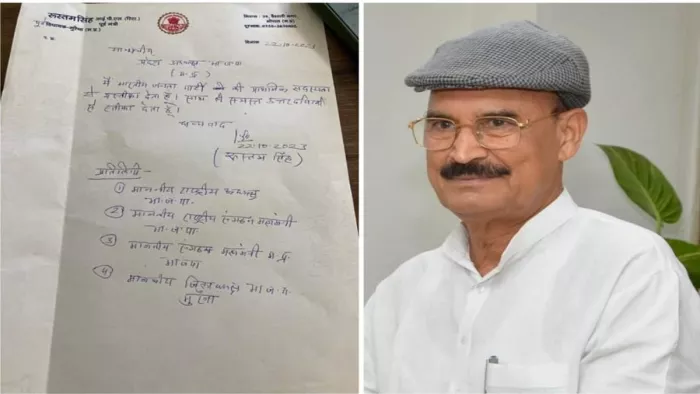 रुस्तमसिंह आई.पी.एस. (रिटा.)
पूर्व मंत्री
पूर्व विधायक-मुरैना (म.प्र.)
भोपाल (म.प्र.)
दिनांक 22-10-2023
माननीय
प्रदेश अध्यक्ष भा.ज.पा.
(म.प्र.)
मैं भारतीय जनता पार्टी की प्राथमिक सदस्यता
से इस्तीफा देता हूँ। साथ ही समस्त उत्तरदायित्वों
से इस्तीफा देता हूँ।
धन्यवाद
22.10.2023
(रुस्तम सिंह)
प्रतिलिपी:-
① माननीय राष्ट्रीय अध्यक्ष
भा.ज.पा.
② माननीय राष्ट्रीय संगठन महामंत्री
भा.ज.पा.
③ माननीय संगठन महामंत्री म.प्र.
भाजपा
④ माननीय जिलाध्यक्ष भा.ज.पा.
मुरैना